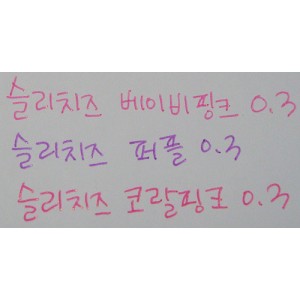 슬리치즈 베이비핑크 0.3
슬리치즈 퍼플 0.3
슬리치즈 코랄핑크 0.3